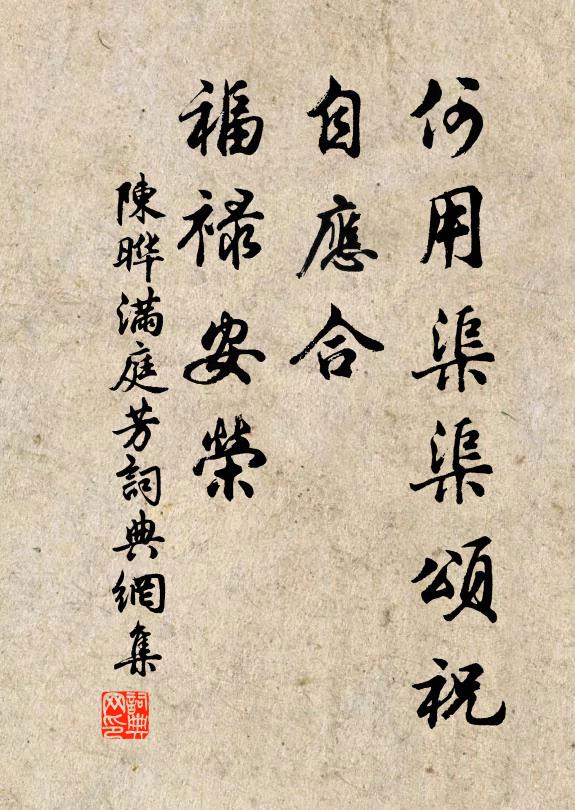 何用渠渠頌祝
自應合
福祿安榮
陳晔滿庭芳詞典網集
詞典
网印